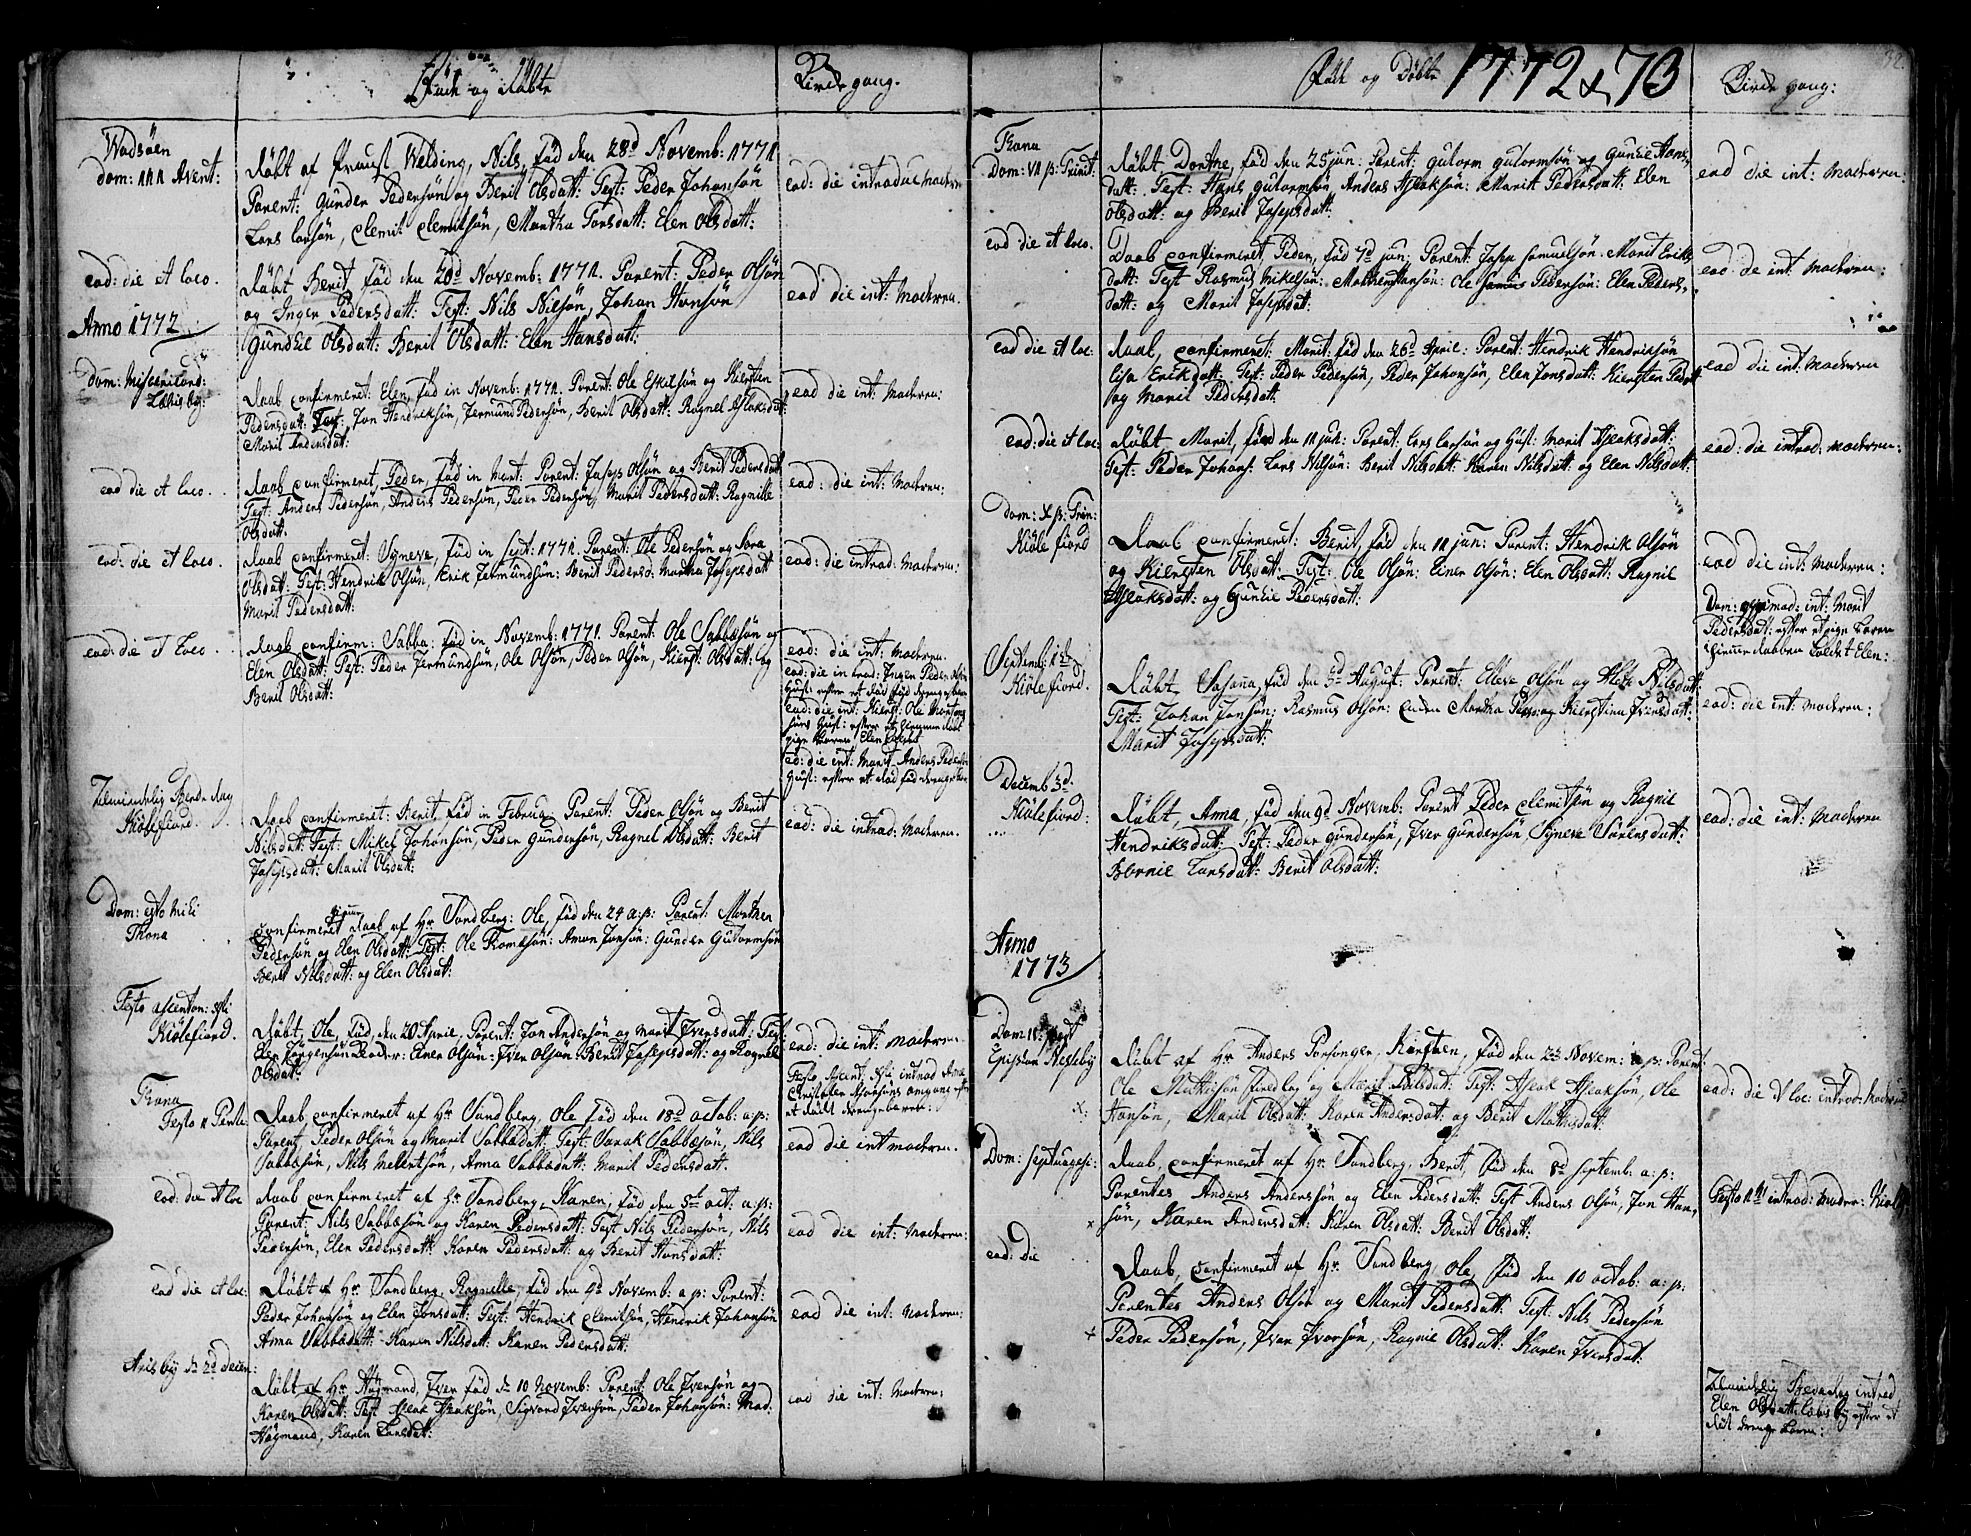 Föd og Döbte
Kirke gang.
Wadsöen
dom: III Avent:
Döbt af Proust Welding, Nils, föd den 28d Novemb: 1771
Parent: Gunder Pedersön og Berit Olsdatt: Test: Peder Johansön
Lars Larsön, Clemit Clemitsön, Martha Larsdatt: Elen Olsdatt:
ead: die introduc Moderen
ead: die et loco.
Döbt Berit föd den 20d Novemb: 1771. Parent: Peder Olsön
og Inger Pedersdatt: Test: Nils Nilsön, Johan Hansön
Gundele Olsdatt: Berit Olsdatt: Elen Hansdatt:
ead die int: Moderen.
Anno 1772
Dom: Misericord:
Daab confirmeret: Elen, föd in Novemb: 1771. Parent: Ole Eskilsön og Kiersten
Pedersdatt: Test: Jon Hendriksön, Jermund Pedersön, Berit Olsdatt: Ragnel Aslaksdatt:
Marit Andersdatt:
ead die int: Moderen:
ead die et loco.
Daab confirmeret, Peder, föd in Mart: Parent: Joseph Olsön og Berit Pedersdatt
Test: Anders Pedersön, Anders Pedersön, Peder Pedersön, Marit Pedersdatt: Ragnille
Olsdatt:
ead: die int: Moderen:
ead: die et loco.
Daab confirmeret: Synneve, föd in Sept: 1771. Parent: Ole Pedersön og Sara
Olsdatt: Test: Hendrik Olsön, Erik Jermundsön: Berit Pedersd: Martha Josepsdatt
Marit Pedersdatt:
ead: die introd: Moderen:
ead: die et loco.
Daab confirm: Sabba: föd in Novemb: 1771. Parent: Ole Sabbasön og
Elen Olsdatt: Test: Peder Jermundsön, Ole Olsön, Peder Olsön, Kierst: Olsdatt: og
Berit Olsdatt:
ead: die int: Moderen.
ead: die introd: Inger Peder
Hust: efter et död föd drengebarn
ead: die int: Kierst: Ole
Hust: efter et hiemme döbt
pige barn Elen kaldet
ead: die int: Marit Anders Peders
Hust: efter et död föd drengebarn
Almindelig Bede dag
Kiölefiord.
Daab confirmeret: Berit, föd in Februa: Parent: Peder Olsön og Berit
Nilsdatt: Test: Mikel Johansön, Peder Gundersön, Ragnel Olsdatt: Berit
Josepsdatt: Marit Olsdatt:
ead: die introd: Moderen.
Dom: esto Mihi
Thona
confirmeret daab af Hr Sandberg: Ole, föd den 24 a:p: Parent: Morten
Pedersön og Elen Olsdatt: Test: Ole Thomesön: Amon Jonsön: Gunder Gutormsön
Berit Nilsdatt: og Elen Olsdatt:
Festo ascention: Xsti
Kiölefiord.
Döbt, Ole, föd, den 20 Parent: Jon Andersön og Marit Iversdatt: Test
Elen Jörgensön: Einer Olsön: Iver Olsön Berit Josepsdatt: og Ragnele
Olsdatt:
ead: die int: Moderen.
Festo Ascent: Xsti introd Anne
et dödt drengebarn:
Thona
Festo II Pente:
Daab, confirmeret af Hr Sandberg, Ole föd den 18d octob: a:p:
Parent, Peder Olsön og Marit Sabbadatt: Test: Isaak Sabbesön, Nils
Sabbesön, Nils Mebertsön, Anna Sabbadatt: Marit Pedersdatt.
ead die int moderen.
ead: die et loc
daab confirmeret af Hr Sandberg, Karen, föd den 5t oct: a:p:
Parent: Nils Sabbesön og Karen Pedersdatt: Test: Nils Pedersön, Nils
Pedersön, Elen Pedersdatt: Karen Pedersdatt: og Berit Hansdatt:
ead die int: Moderen:
ead die et loc:
Döbt af Hr Sandberg, Ragnille, föd den 9d Novemb: a:p: Parent:
Peder Johansön og Elen Jonsdatt: Test: Hendrik Clemitsön, Hendrik Johansön
Anna Sabbadatt: Karen Nilsdatt: Karen Pedersdatt:
ead die int: Moderen:
Döbt af Hr Hagmand, Iver föd d 10 Novemb: Parent: Ole Iversön og
Karen Olsdatt: Test: Aslak Aslaksön, Sigvord Iversön, Peder Johansön: Mad.
Hagmand, Karen Larsdatt:
ead die int: Moderen:
Föd og Döbte 1772 & 73
Kirke gang:
32
Thona
Dom: VI p: Trinit:
Döbt Dorthe, föd den 25 jun: Parent: Gutorm Gutormsön og Gunele Hans
datt: Test: Hans Gutormsön, Anders Aslaksön: Marit Pedersdatt: Elen
Olsdatt: og Berit Josepsdatt:
ead die int: Moderen:
ead die et loco.
Daab confirmeret, Peder, föd 7d jun: Parent: Josep Samuelsön: Marit Eriks
datt: Test Rasmus Mikelsön: Mathis Hansön: Ole Pedersön: Elen Peders
datt: og Marit Josepsdat:
ead: die int: Moderen:
ead die et loc:
daab, confirmeret: Marit: föd den 26d April: Parent: Hendrik Hendriksön
Lisa Eriksdatt: Test: Peder Pedersön, Peder Johansön, Elen Jonsdatt: Kiersten Pedersdatt
og Marit Pedersdatt.
ead die int: Moderen
ead: die et loc:
Döbt Marit, föd den 11 juli: Parent: Lars Larsön og Hust: Marit Aslaksdatt:
Test: Peder Johans: Lars Nilsön: Berit Nilsdatt: Karen Nilsdatt: og Elen Nilsdatt:
ead: die introd: Moderen:
Dom: X p: Trin:
Kiöle fiord
Daab confirmeret: Berit, föd den 11 jun: Parent: Hendrik Olsön
og Kiersten Olsdatt: Test: Ole Olsön: Einer Olsön: Elen Olsdatt: Ragnil
Aslaksdatt: og Gunele Pedersdatt:
ead die int: Moderen:
int: Marit
Pedersdatt: efter et pige barn
hiemme döbt kaldet Elen:
Septemb: 1td
Kiölefiord.
Döbt, Sosana, föd den 5d August: Parent: Elleve Olsön og Aleth Nilsdatt:
Test: Johan Jonsön: Rasmus Olsön: Martha og Kierstina Iversdatt:
Marit Josepsdatt:
ead: die int: Moderen:
Decemb 3d
Kiölefiord:
Döbt, Anna, föd den 9d Novemb: Parent Peder Clemitsön og Ragnil
Hendriksdatt: Test: Peder Gundersön, Iver Gundersön, Synneve Sörensdatt:
Börnie Larsdatt: Berit Olsdatt:
ead: die int: Moderen
Anno
1773
Dom IV: post
Epiphan Nesseby
Döbt af Hr Anders Porsanger, Kirsten, föd den 23 Novem: a:p: Parent:
Ole Mathisön og Marit Nilsdatt: Test: Aslak Aslaksön, Ole
Hansön, Marit Olsdatt: Karen Andersdatt: og Berit Mathisdatt:
ead: die et loc: introd: Moderen
Dom: septuagesi:
Daab, confirmeret af Hr Sandberg, Berit, föd den 8d septemb: a:p:
Parentes Anders Andersön og Elen Pedersdatt: Test Anders Olsön, Jon Han,
sön, Karen Andersdatt: Karen Olsdatt: Berit Olsdatt:
introd: Moder:
ead: die
Daab, confirmeret af Hr. Sandberg, Ole, föd den 10 octob: a:p:
Parentes Anders Olsön og Marit Pedersdatt: Test: Nils Pedersön
Peder Pedersön, Iver Iversön, Ragnie Olsdatt: Karen Iversdat:
Almindelig Bededag introd
Elen Olsdatt: efter et
död drenge barn: